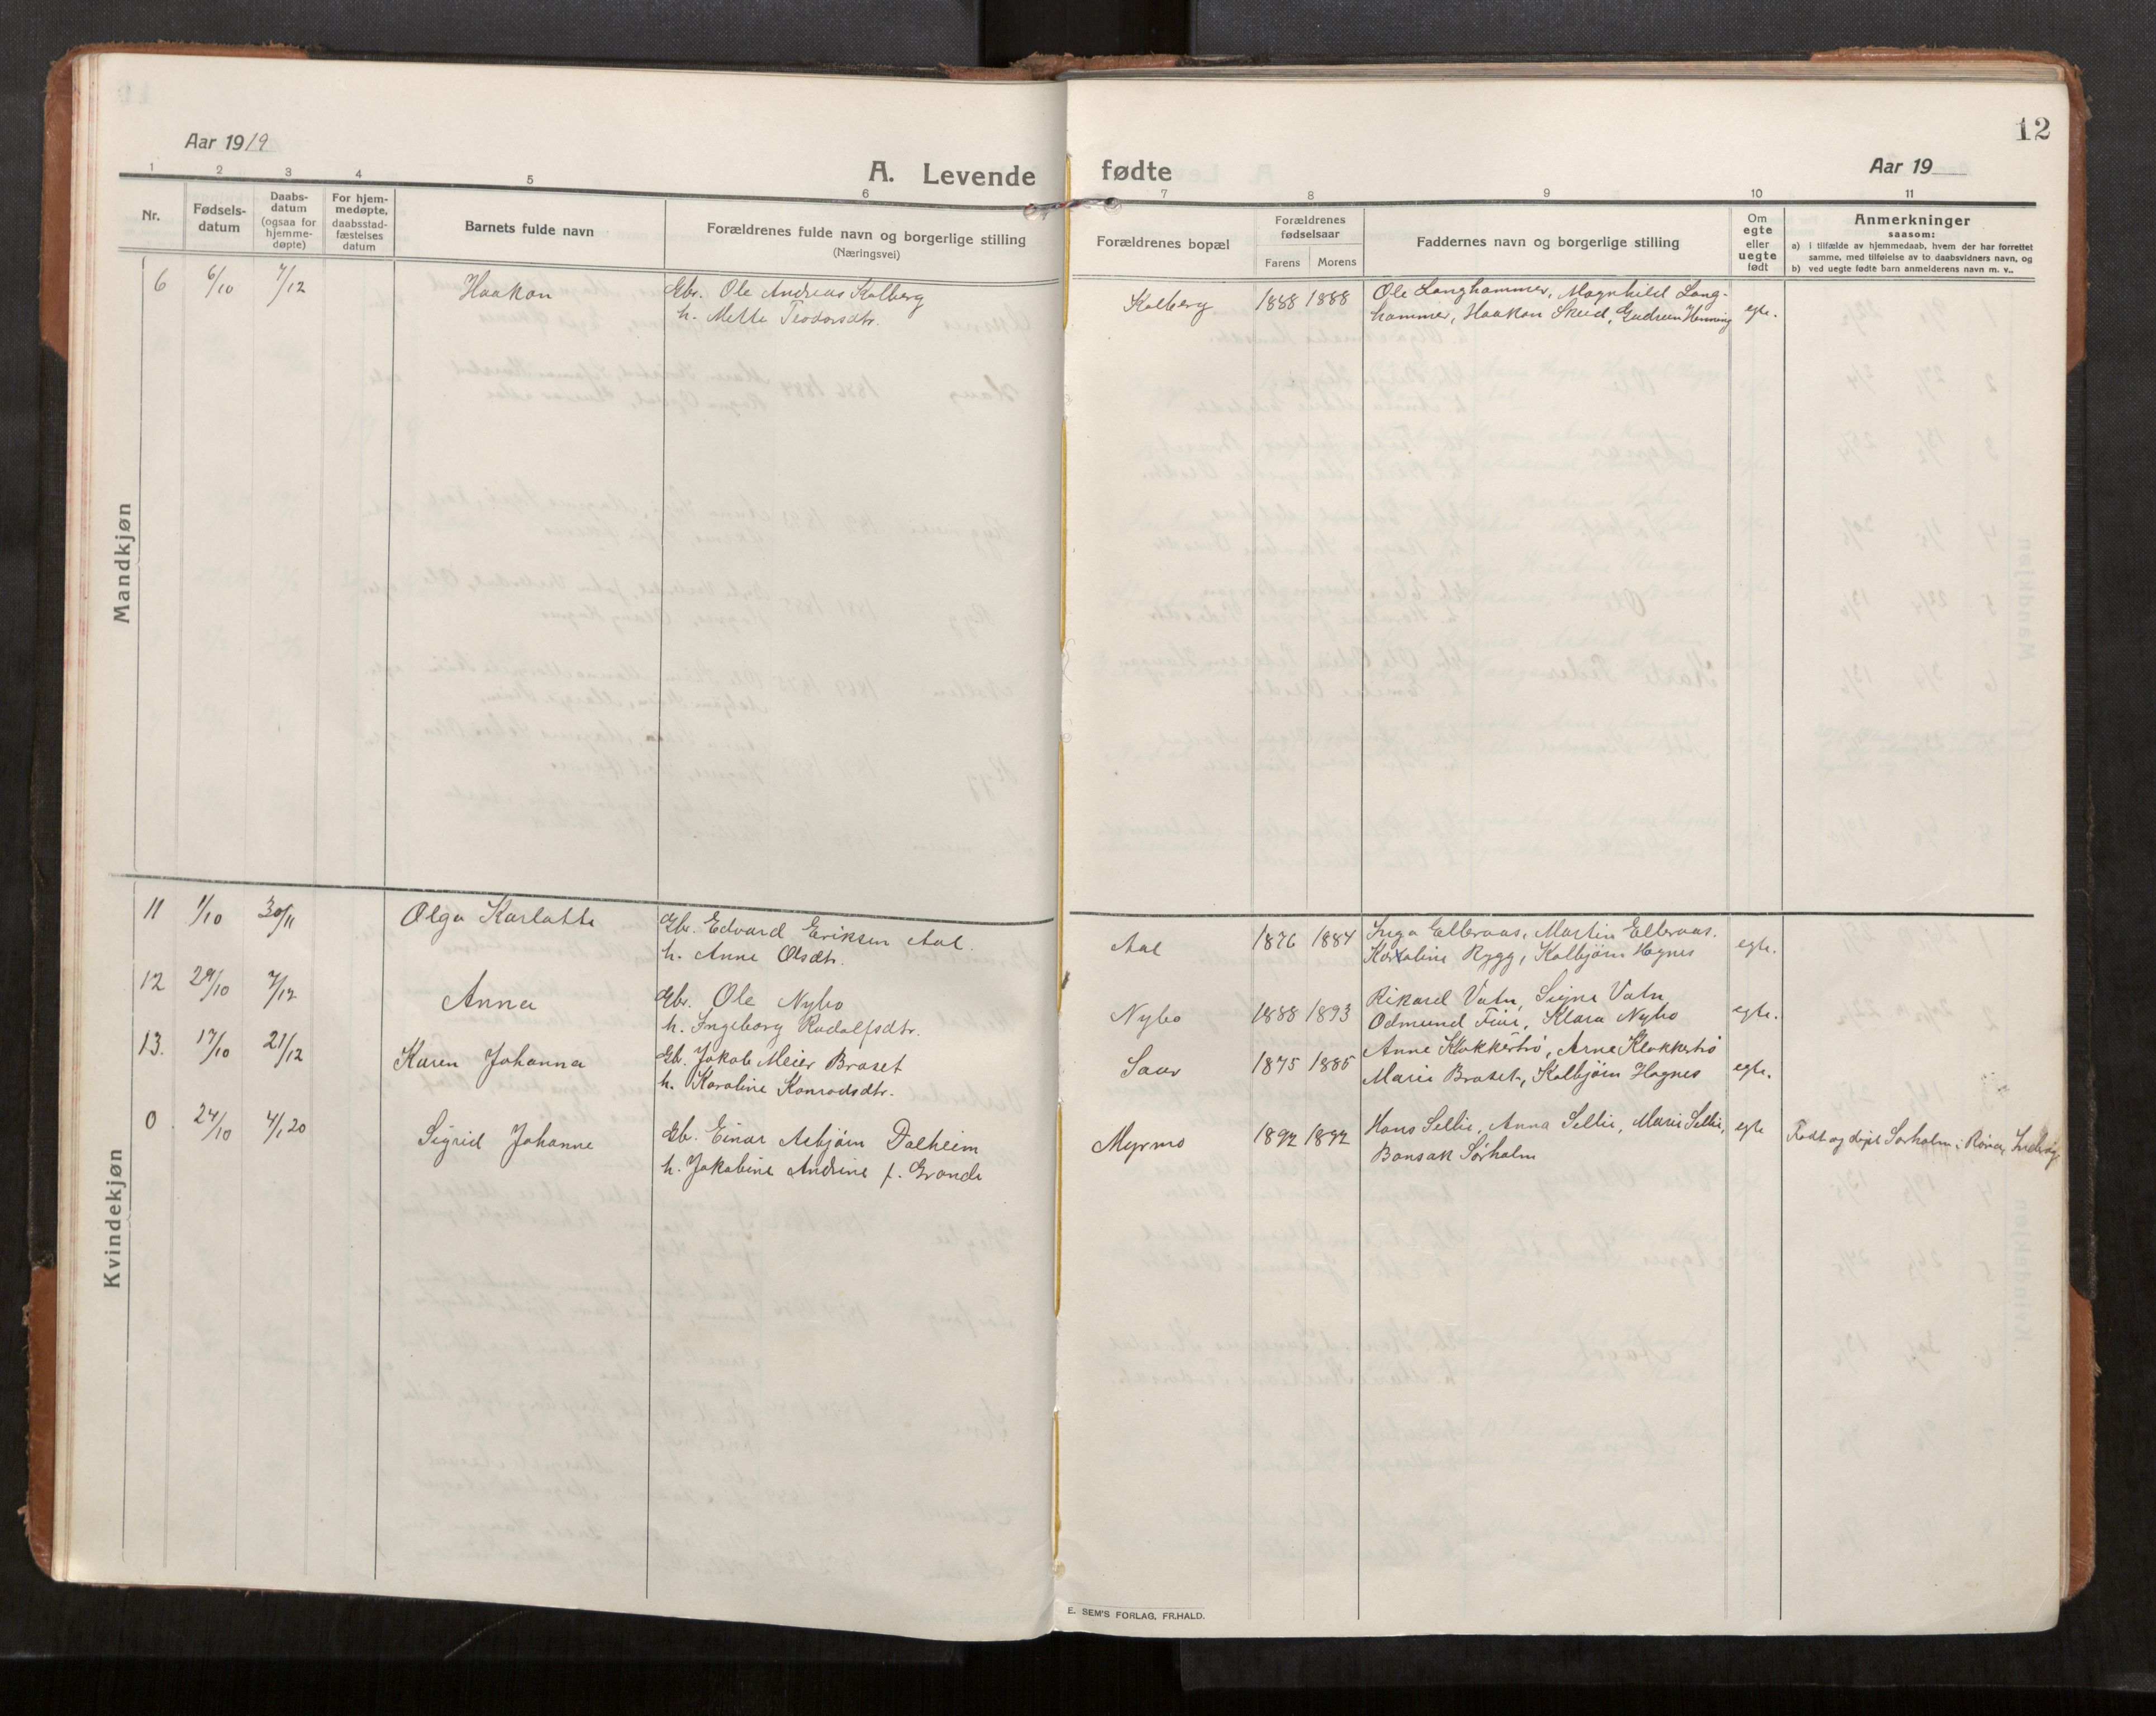 12
Aar 1919
A. Levende fødte
Aar 19
1 2 3 4 5 6 7 8 9 10 11
Nr.
Fødsels-
datum
Daabs-
datum
(ogsaa for
hjemme-
døpte)
For hjem-
medøpte,
daabsstad-
fæstelses
datum
Barnets fulde navn
Forældrenes fulde navn og borgerlige stilling
(Næringsvei)
Forældrenes bopæl
Forældrenes
fødselsaar
Farens Morens
Faddernes navn og borgerlige stilling
Om
egte
eller
uegte
født
Anmerkninger
saasom:
a) i tilfælde av hjemmedaab, hvem der har forrettet
samme, med tilføielse av to daabsvidners navn, og
b) ved uegte fødte barn anmelderens navn m. v..
Mandkjøn
6 6/10 7/12 Haakon Gbr. Ole Andreas Kalberg Kalberg 1888 1888 Ole Langhammer, Magnhild Lang- egte.
h. Mette Teodorsdtr. hammer, Haakon Skeid, Gudrun Henning
Kvindekjøn
11 1/10 30/11 Olga Karlotte Gbr. Edvard Eriksen Aal. Aal 1876 1884 Inga Elleraas, Martin Elleraas. egte.
h. Anne Olsdtr. Karoline Rygg, Kolbjørn Hagnes
12 29/10 7/12 Anna Gbr. Ole Nybo Nybo 1888 1893 Rikard Vatn, Signe Vatn egte.
h. Ingeborg Rudolfsdtr. Odmund Five, Klara Nybo
13. 17/10 21/12 Karen Johanna Gb. Jakob Meier Braset Saur 1875 1885 Anne Klokkerhó, Arne Klokkerhó egte.
h. Karoline Konradsdtr. Marie Braset, Kolbjørn Hagnes
0 24/10 4/1 20 Sigrid Johanne Gb. Einar Asbjørn Dalheim Myrmo 1892 1892 Hans Sellie, Anna Sellie, Marie Sellie, egte Født og døpt Sørholm i Røra, Inderøy
h. Jakobine Andrine f. Grande Bonsak Sørholm
E. SEM'S FORLAG, FR.HALD.